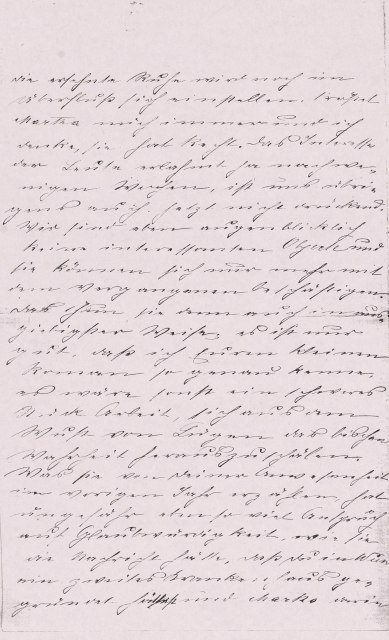 die ersehnte Ruhe wird noch im
Überfluß sich einstellen, tröstet
Marka mich immer und ich
denke, sie hat Recht. Das Interesse
der Leute erlahmt ja nach we-
nigen Wochen, ist uns übri-
gens auch jetzt nicht drückend.
Wir sind eben augenblicklich
keine interessanten Objecte und
sie können sich nur mehr mit
dem Vergangenen beschäftigen.
Das thun sie denn auch in aus-
giebigster Weise; es ist nur
gut, daß ich Euren kleinen
Roman so genau kenne,
es wäre sonst ein schweres
Stück Arbeit, sich aus dem
Wust von Lügen das bischen
Wahrheit herauszuschälen.
Was sie von Deiner Anwesenheit
im vorigen Jahr erzählen, hat
ungefähr eben so viel Anspruch
auf Glaubwürdigkeit, wie sie
die Nachricht hätte, daß Du in
ein zweites Krankenhaus ge-
gründet hättest und Marka darin